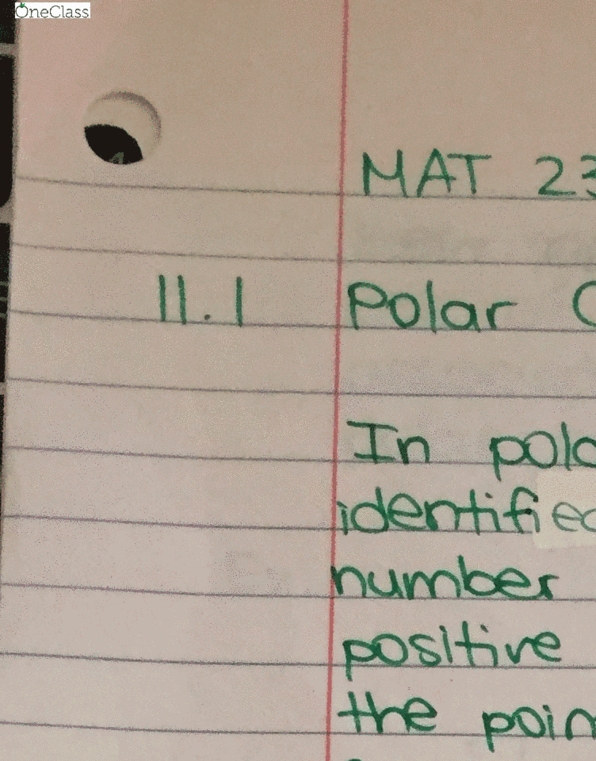 OneClass
MAT 23
11.1 Polar C
In pola
identified
number
positive
the poin